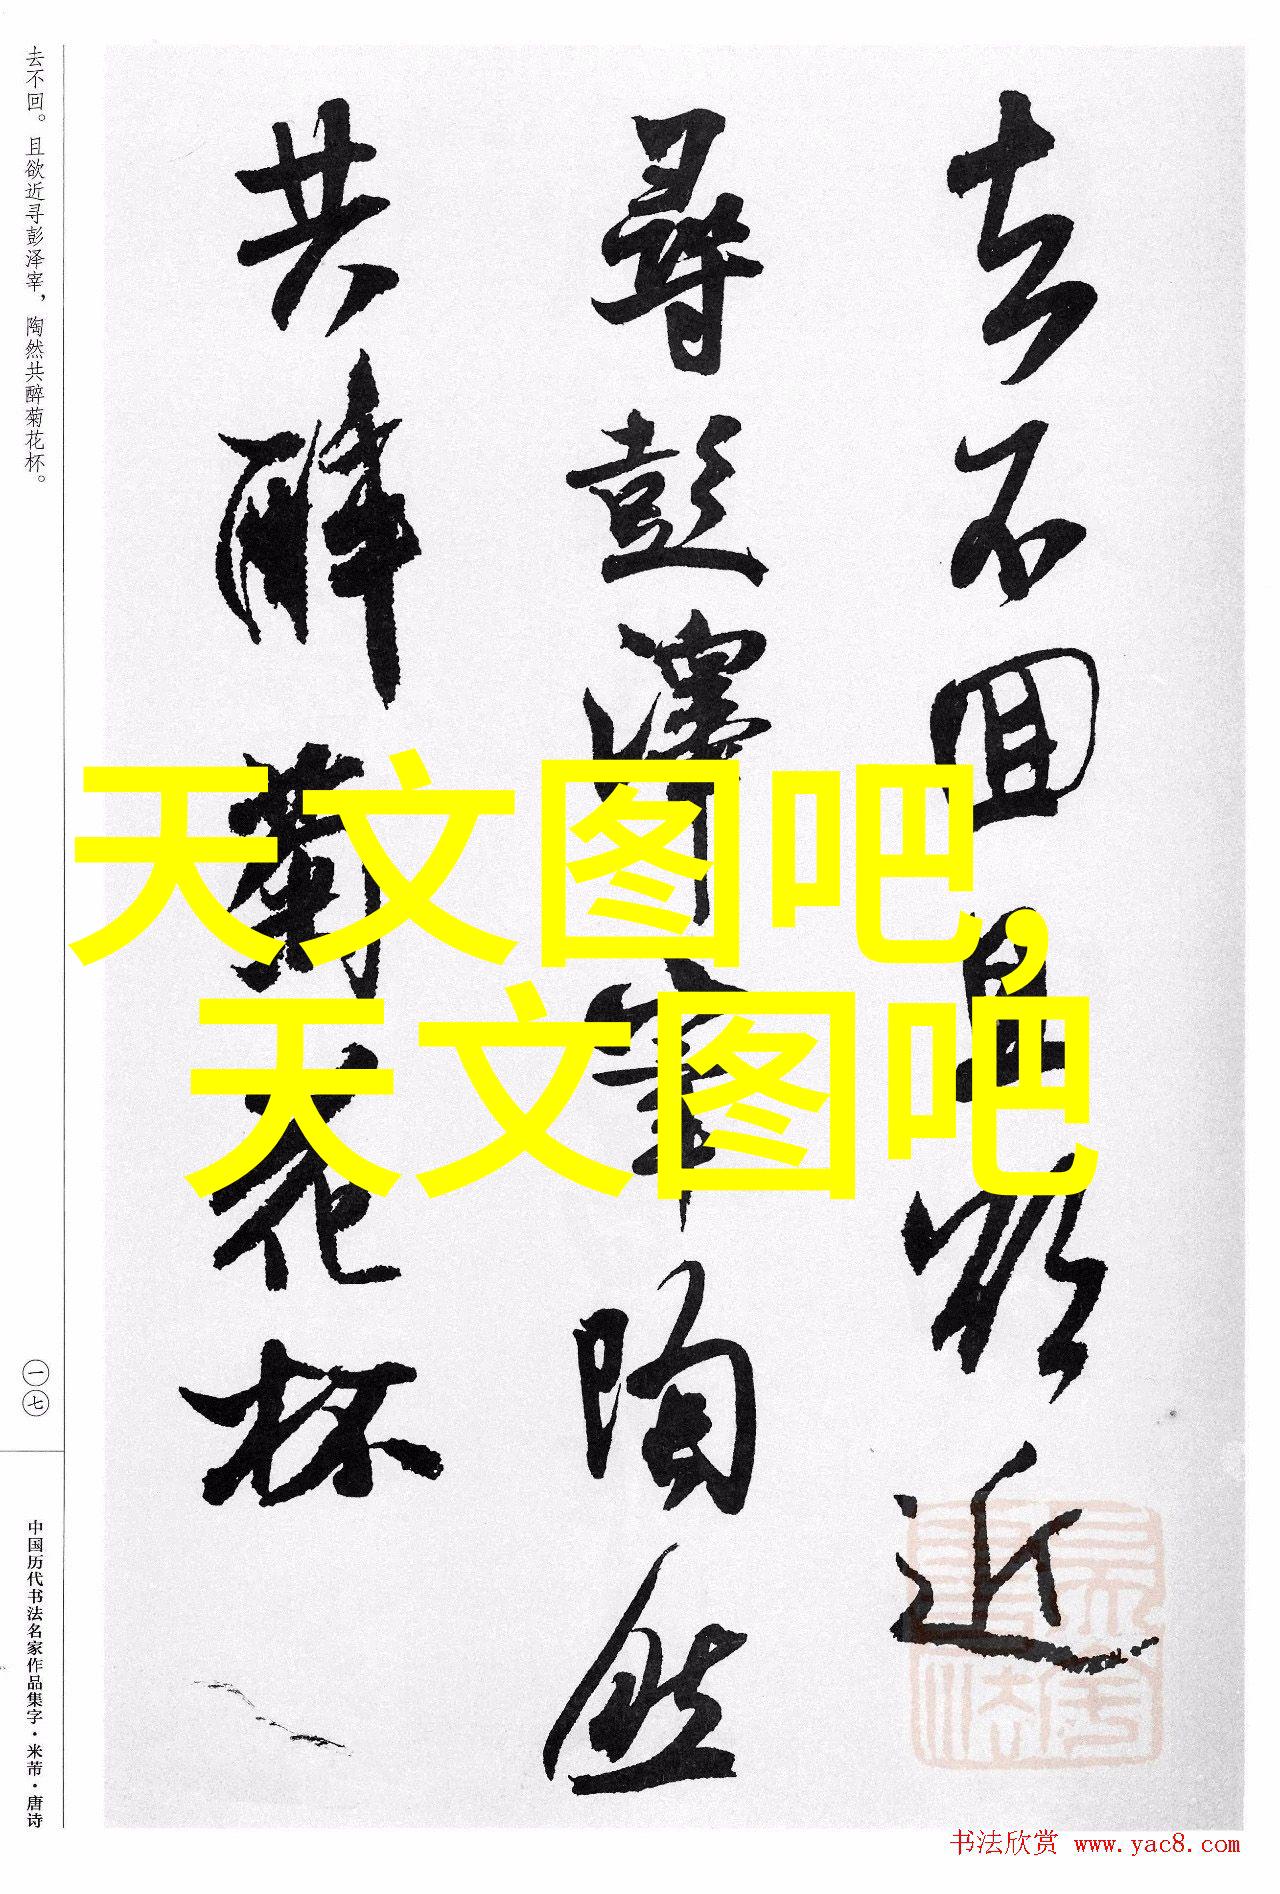 去不回且欲近
尋彭澤宰陶然
共醉菊花杯
去不回。且欲近寻彭泽宰，陶然共醉菊花杯。
一七
中国历代书法名家作品集字·米芾·唐诗
天文图吧,
天文图吧
书法欣赏 www.yac8.com